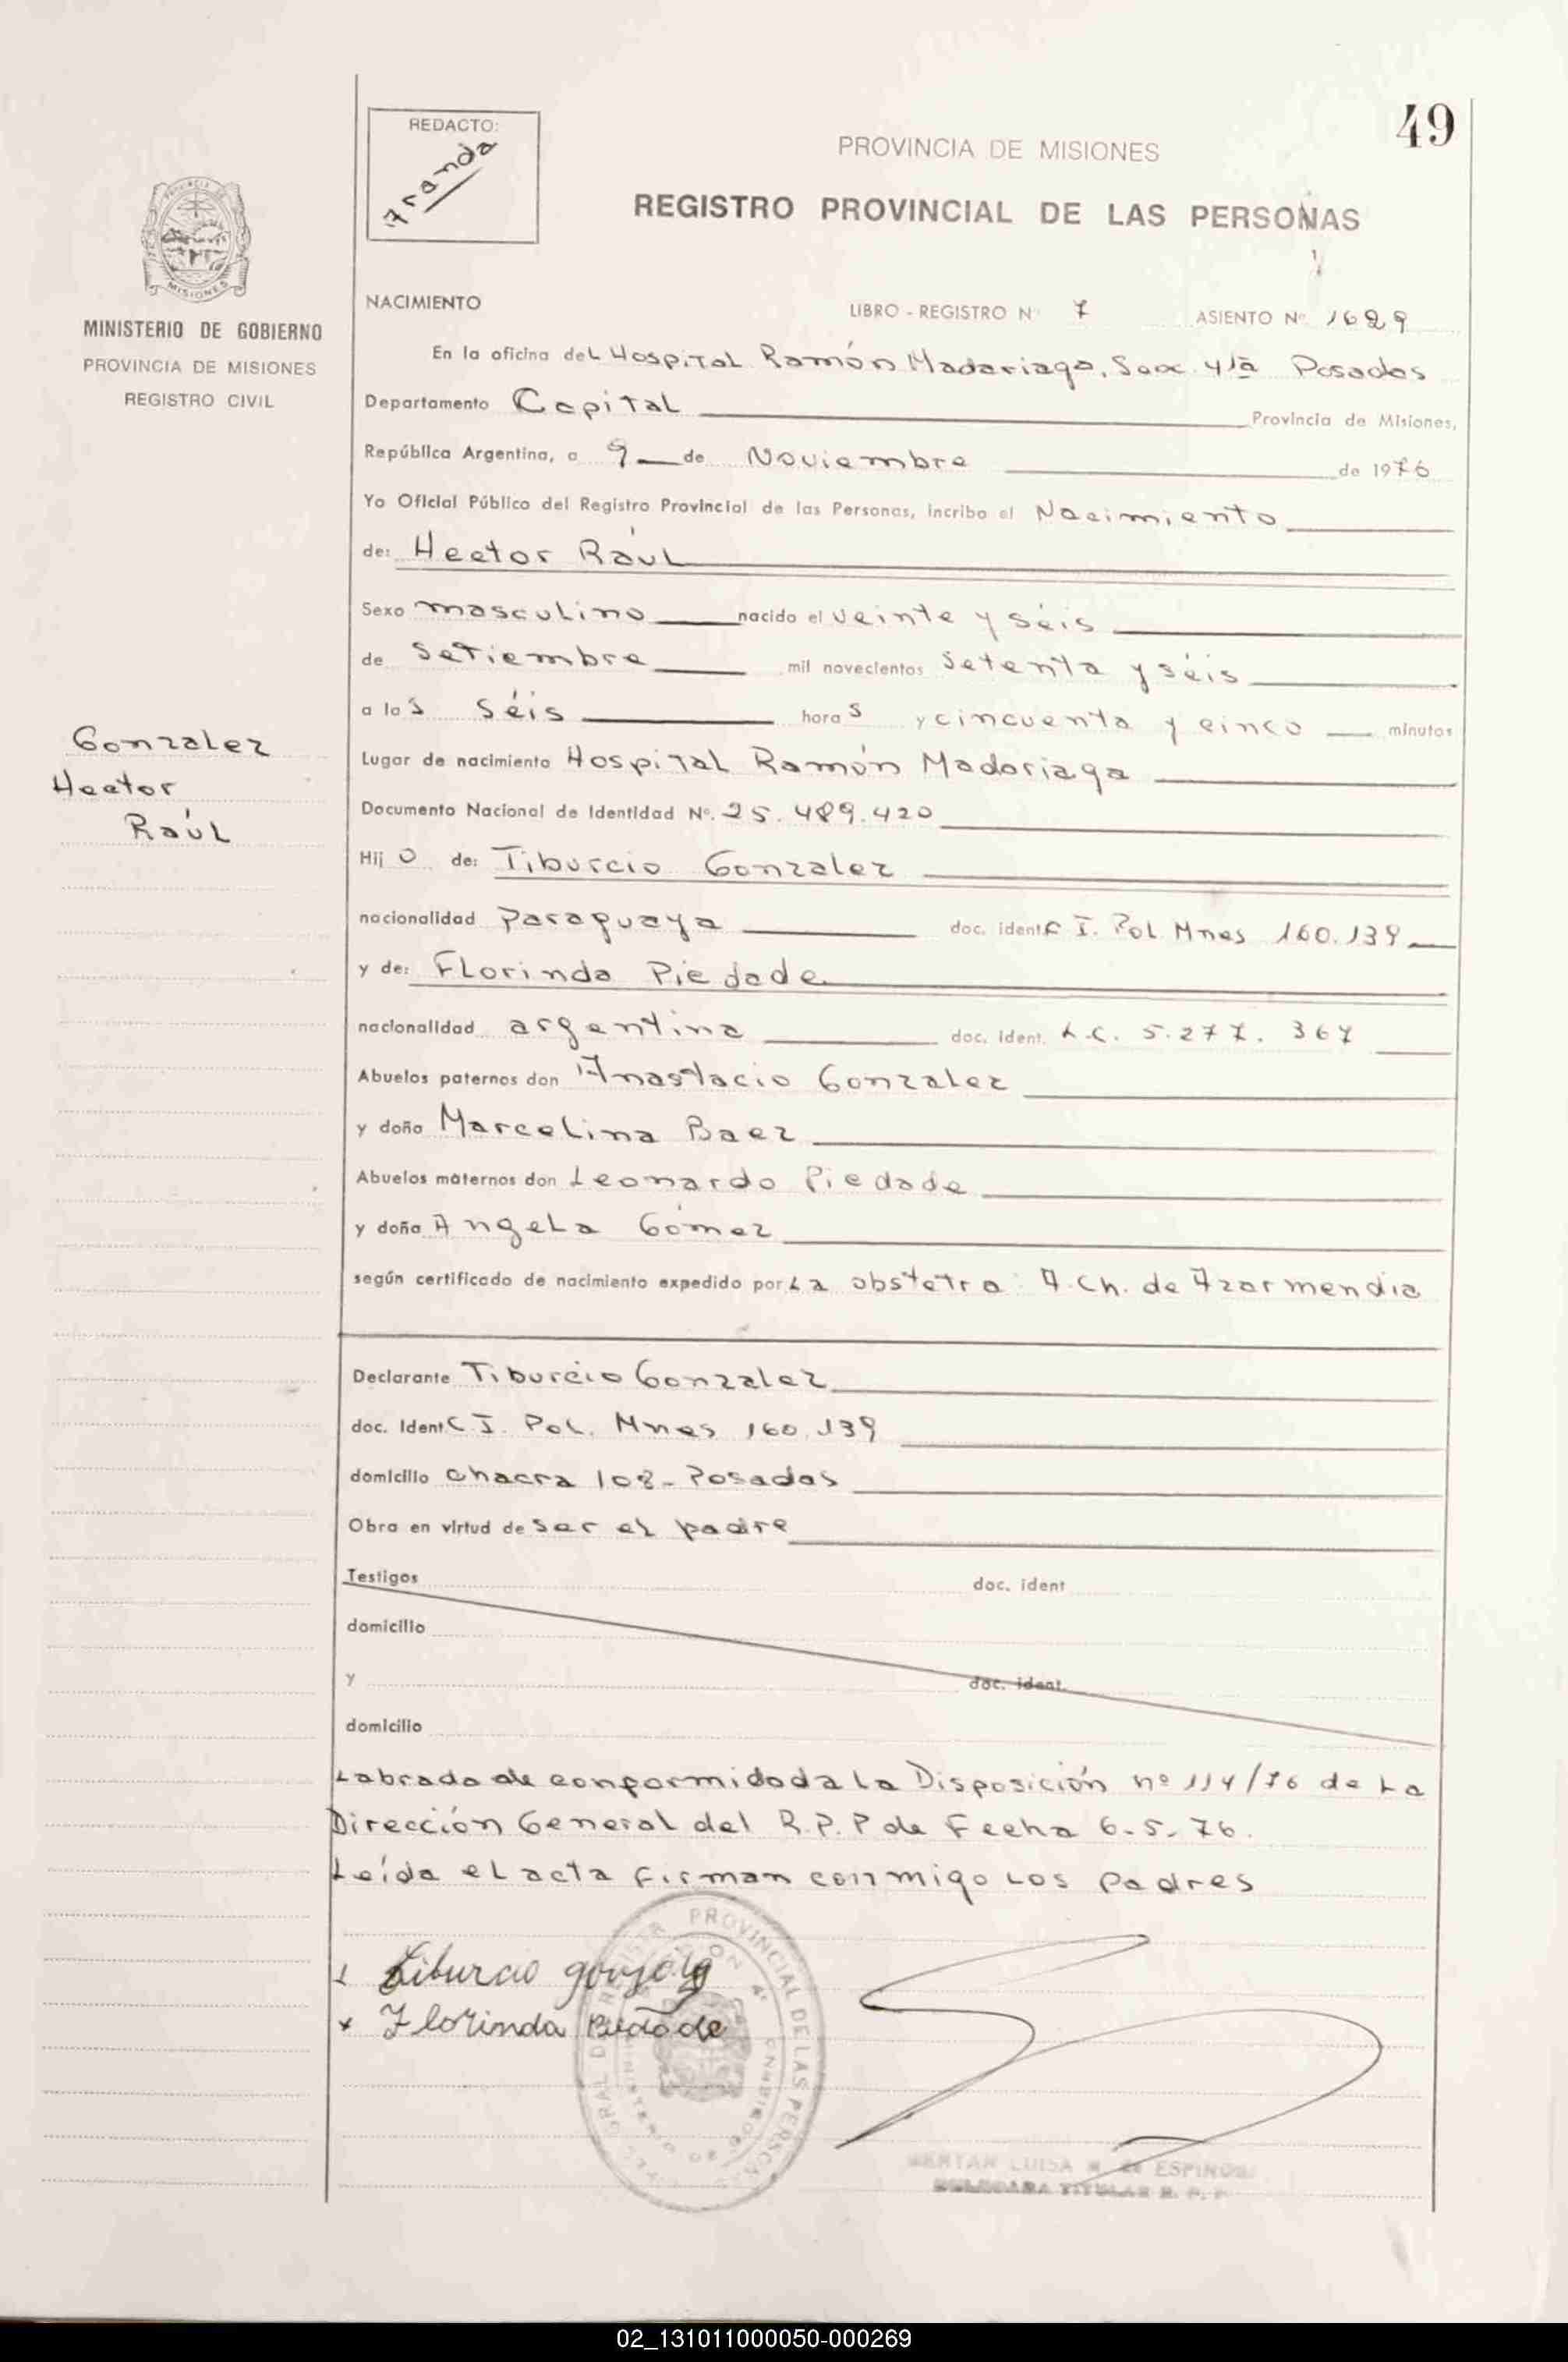 49
REDACTO:
Aranda
PROVINCIA DE MISIONES
REGISTRO PROVINCIAL DE LAS PERSONAS
PROVINCIA DE
MISIONES
MINISTERIO DE GOBIERNO
PROVINCIA DE MISIONES
REGISTRO CIVIL
NACIMIENTO LIBRO - REGISTRO Nº 7 ASIENTO Nº 1629
En la oficina del Hospital Ramón Madariaga, Secc. 4ta Posadas
Departamento Capital Provincia de Misiones,
República Argentina, a 9 de Noviembre de 1976
Yo Oficial Público del Registro Provincial de las Personas, incribo el Nacimiento
de: Hector Raúl
Sexo masculino nacido el veinte y séis
de setiembre mil novecientos setenta y séis
a las séis horas y cincuenta y cinco minutos
Gonzalez
Hector
Raúl
Lugar de nacimiento Hospital Ramón Madariaga
Documento Nacional de Identidad Nº. 25.489.420
Hijo de: Tiburcio Gonzalez
nacionalidad paraguaya doc. ident. C I. Pol Mnes 160.139
y de: Florinda Piedade
nacionalidad argentina doc. ident. L.C. 5.277.367
Abuelos paternos don Anastacio Gonzalez
y doña Marcelina Baez
Abuelos maternos don Leonardo Piedade
y doña Angela Gómez
según certificado de nacimiento expedido por La obstetra: A. Ch. de Azarmendia
Declarante Tiburcio Gonzalez
doc. Ident C.I. Pol. Mnes 160.139
domicilio chacra 108- Posadas
Obra en virtud de ser el padre
Testigos doc. ident
domicilio
y doc. ident.
domicilio
Labrada de conformidad a la Disposición nº 114/76 de La
Dirección General del R.P.P de Fecha 6-5-76.
Leída el acta firman conmigo Los padres
Tiburcio gonzalez
x Florinda Piedade
PROVINCIAL DE LAS PERSONAS
LUISA M. de ESPINOSA
TITULAR R. P. P
02_131011000050-000269